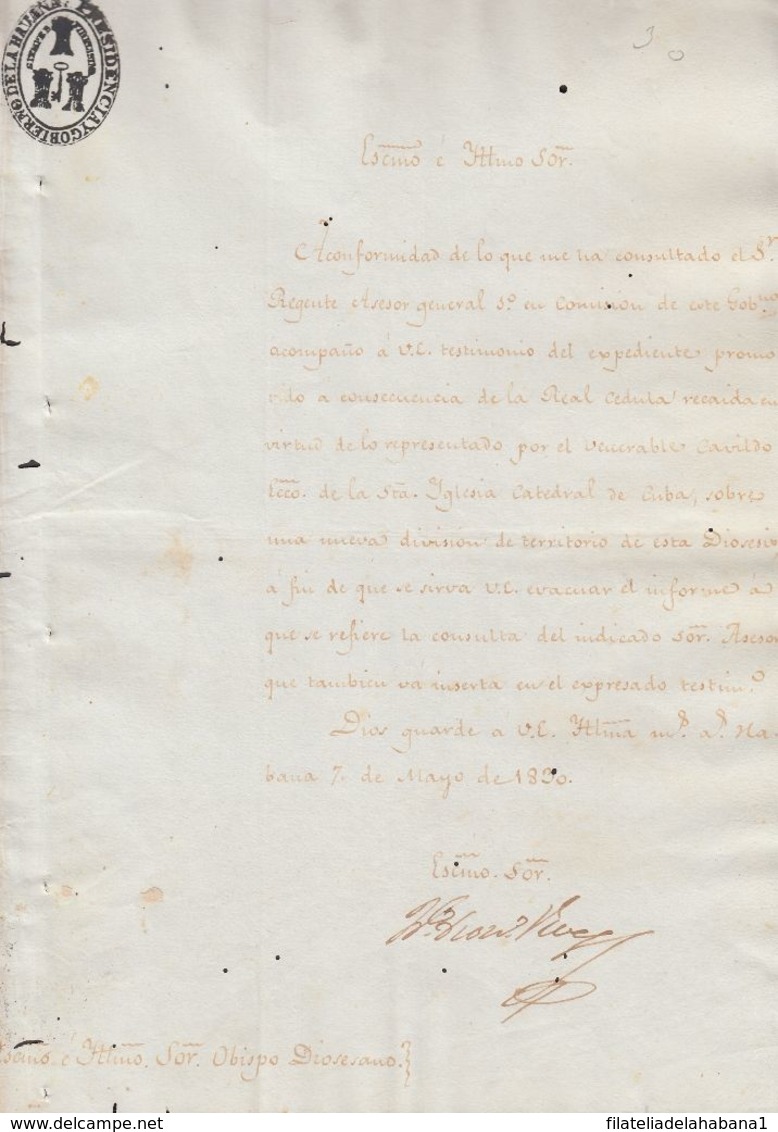 PRESIDENCIA Y GOBIERNO DE LA HAUANA
30
Escmo é Yltmo Sor.
A conformidad de lo que me ha consultado el Sr.
Regente Asesor general 3.o en Comision de este Gobno
acompaño á V.E. testimonio del expediente promo
vido a consecuencia de la Real Cedula recaida en
virtud de lo representado por el Venerable Cavildo
Ecco. de la Sta. Yglesia Catedral de Cuba, sobre
una nueva division de territorio de esta Diosesis
á fin de que se sirva V.E. evacuar el informe á
que se refiere la consulta del indicado Sor. Asesor
que tambien vá inserta en el expresado testim.o
Dios guarde á V.E. Yltma ms. as. Ha-
bana 7. de Mayo de 1830.
Escmo. Sor.
Vives
Escmo é Yltmo. Sor. Obispo Diosesano.
filateliadelahabana1